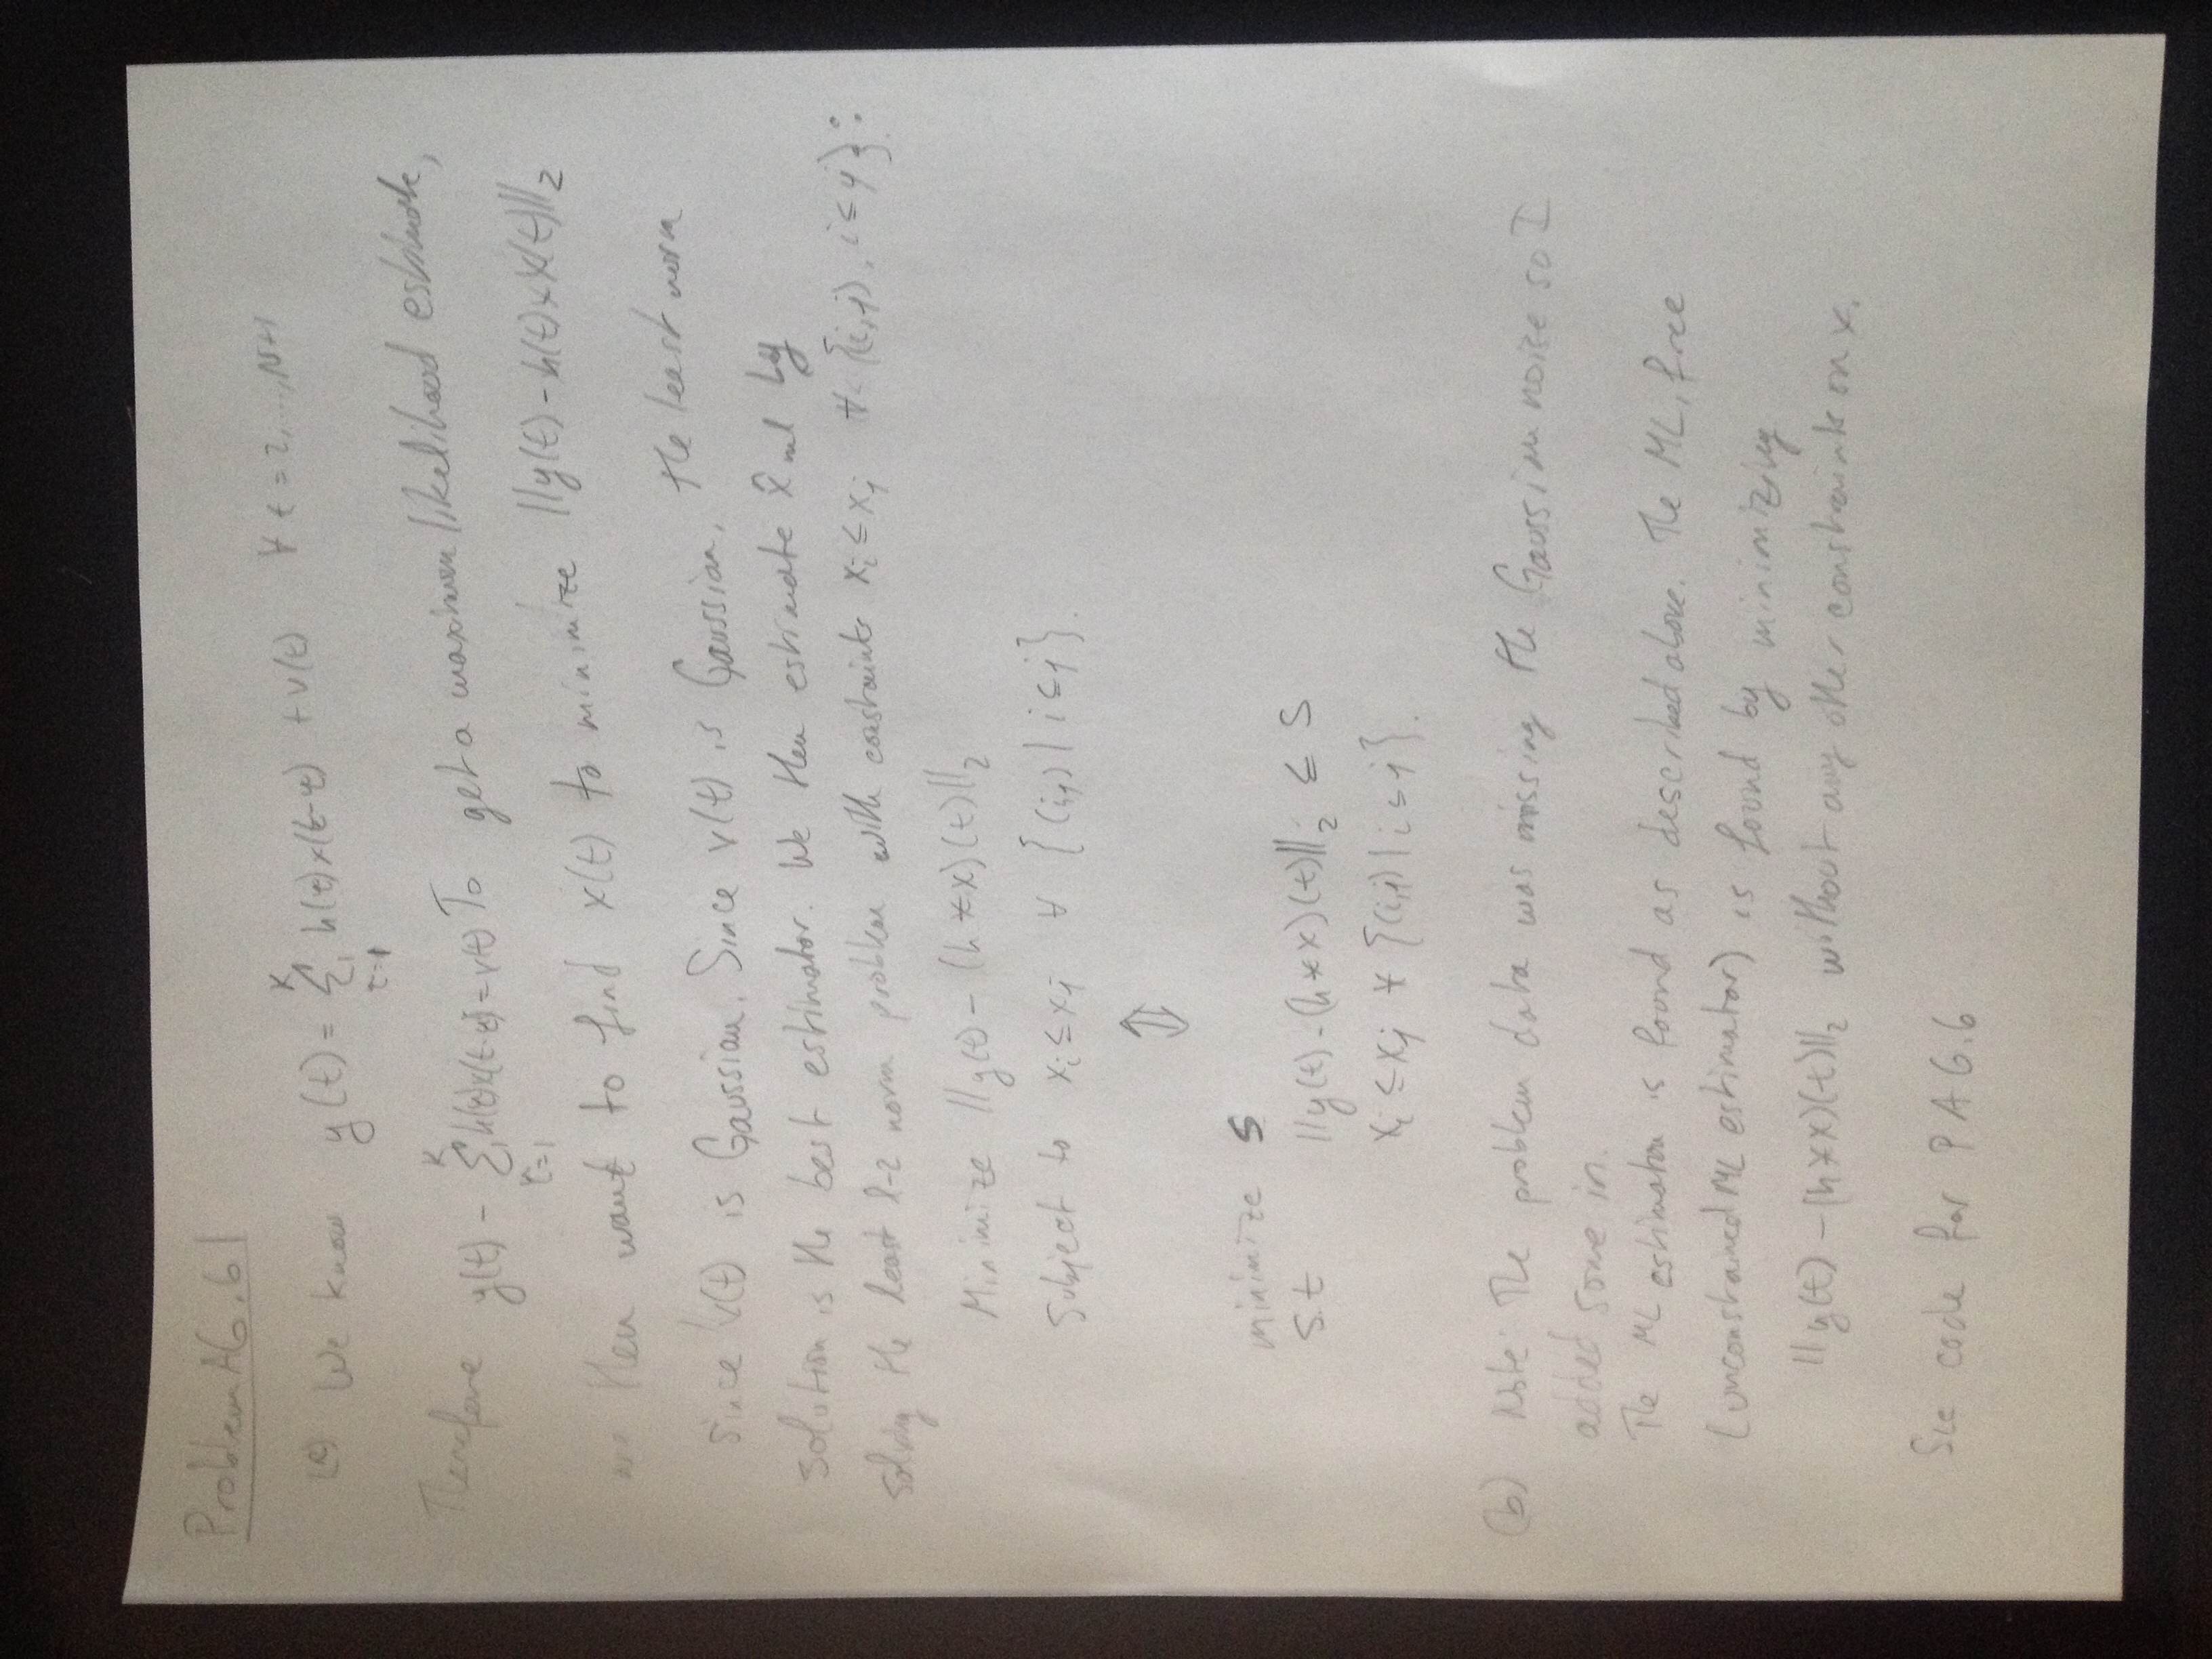 Problem A6.6
(a) We know y(t) = Σ_{τ=1}^{k} h(τ)x(t-τ) + v(t) ∀ t = 2,...,N+1
Therefore y(t) - Σ_{τ=1}^{k} h(τ)x(t-τ) = v(t) To get a maximum likelihood estimate,
we then want to find x(t) to minimize ||y(t) - h(t)*x(t)||₂
Since v(t) is Gaussian. Since v(t) is Gaussian, the least norm
solution is the best estimator. We then estimate x̂ml by
solving the least l-2 norm problem with constraints xi ≤ xj ∀ {(i,j), i ≤ j}:
Minimize ||y(t) - (h*x)(t)||₂
Subject to xi ≤ xj ∀ {(i,j) | i ≤ j}.
⇕
minimize S
s.t ||y(t) - (h*x)(t)||₂ ≤ S
xi ≤ xj ∀ {(i,j) | i ≤ j}.
(b) Note: The problem data was missing the Gaussian noise so I
added some in.
The ML estimator is found as described above. The ML, free
(unconstrained ML estimator) is found by minimizing
||y(t) - (h*x)(t)||₂ without any other constraints on x.
See code for PA6.6